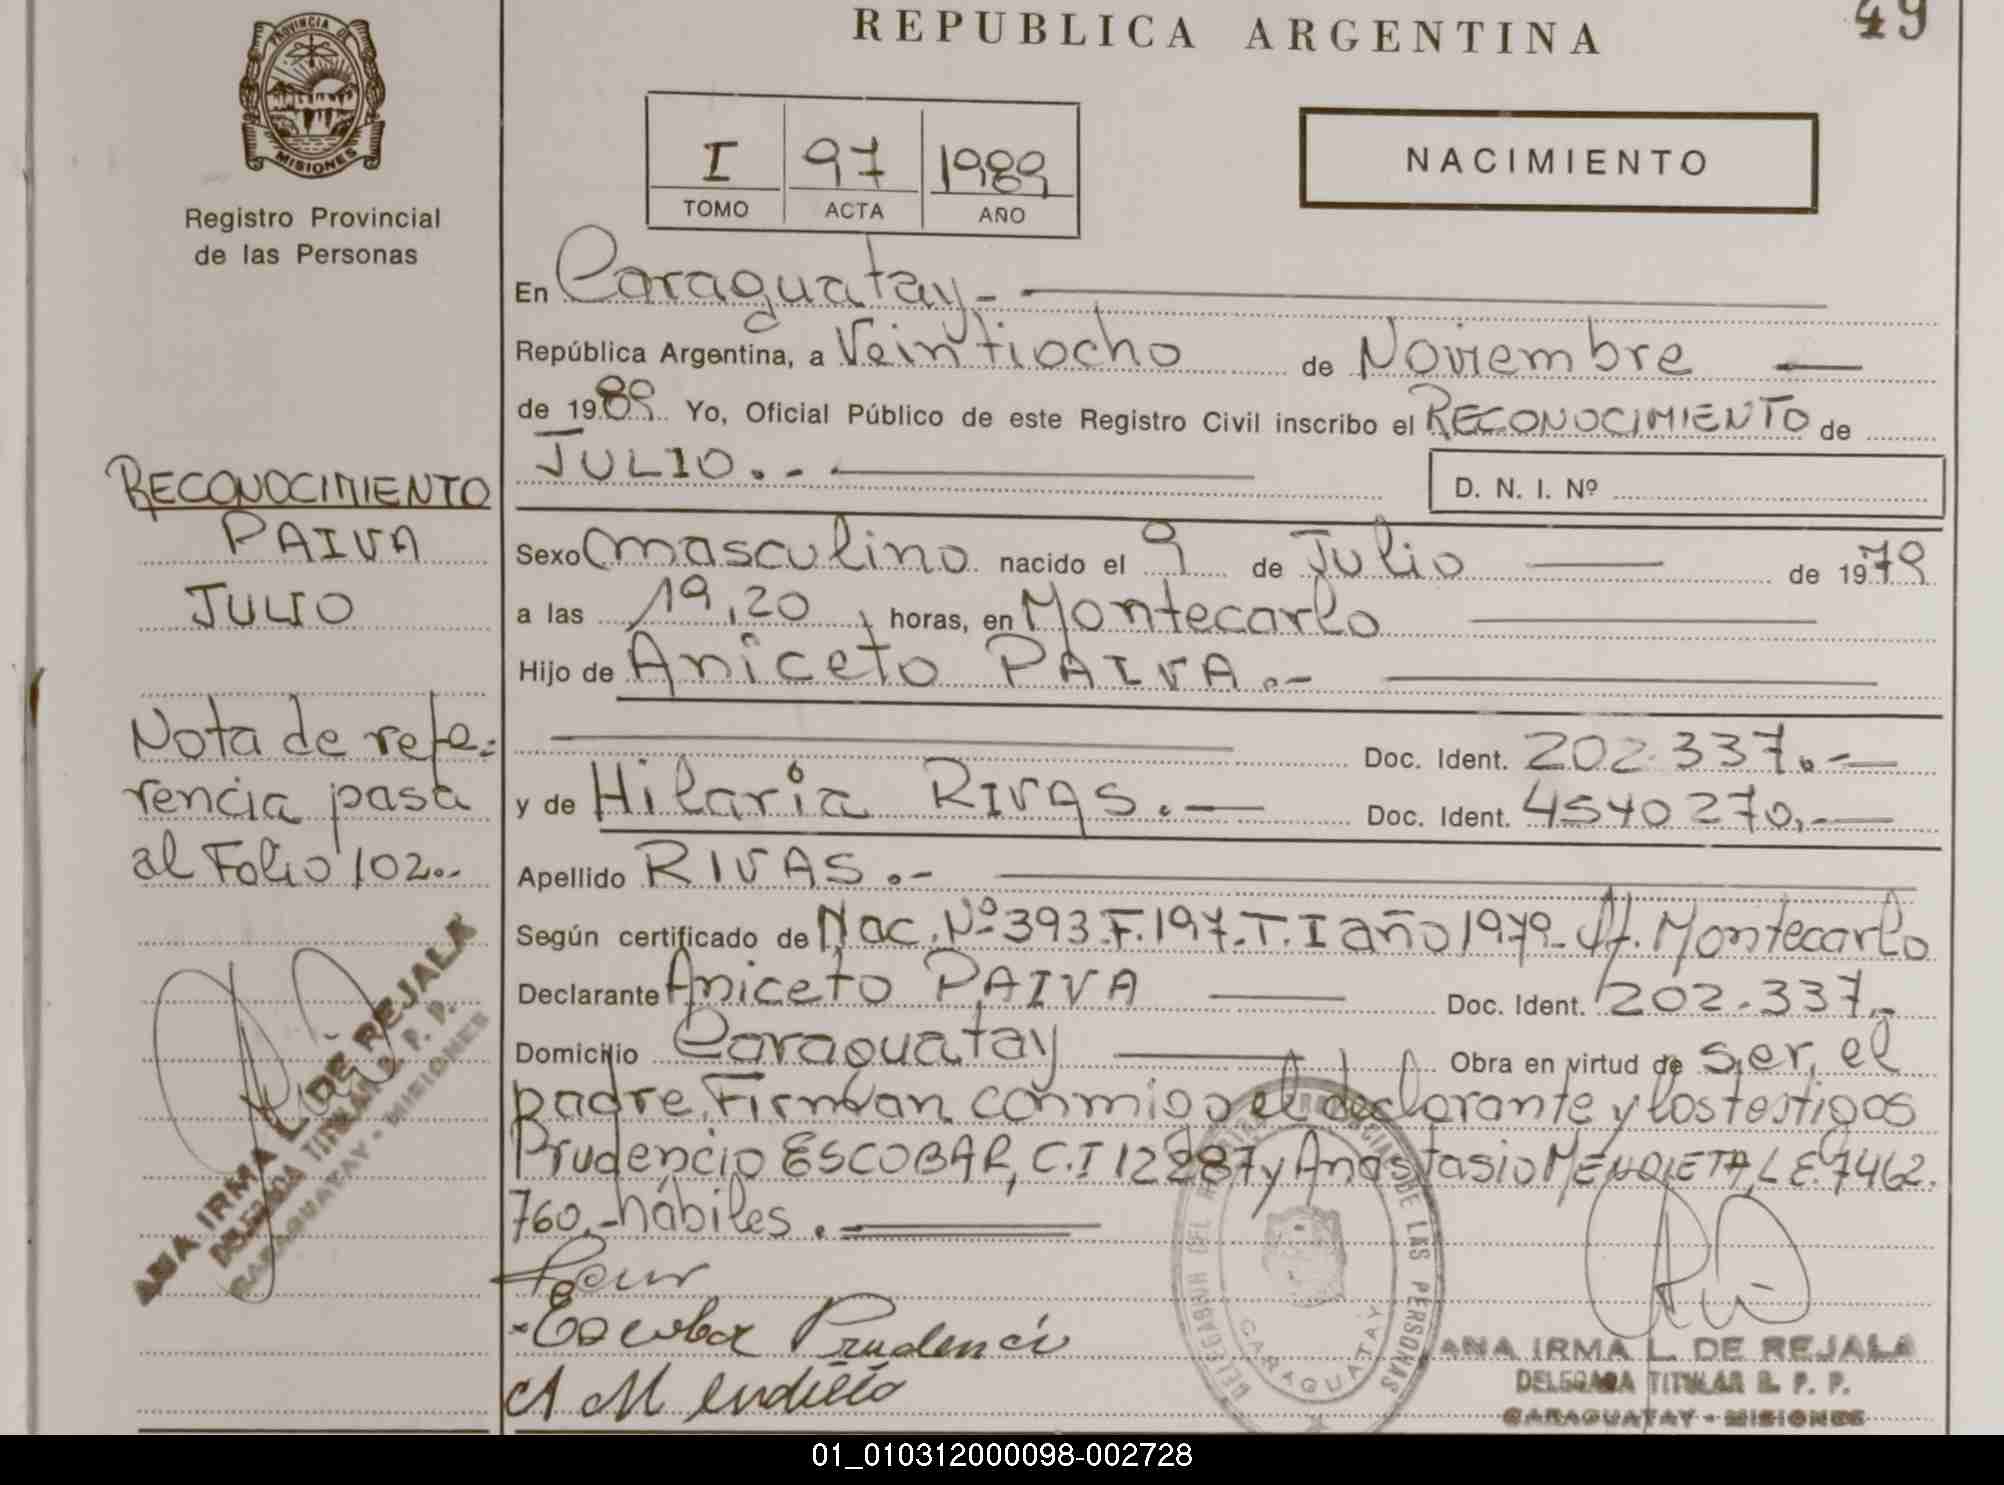 REPUBLICA ARGENTINA
49
PROVINCIA D
MISIONES
Registro Provincial
de las Personas
I 97 1989
TOMO ACTA AÑO
NACIMIENTO
En Caraguatay.-
República Argentina, a Veintiocho de Noviembre
de 1989. Yo, Oficial Público de este Registro Civil inscribo el RECONOCIMIENTO de
JULIO.-
D. N. I. Nº
RECONOCIMIENTO
PAIVA
JULIO
Nota de refe-
rencia pasa
al Folio 102.-
Sexo masculino nacido el 9 de Julio de 1979
a las 19,20 horas, en Montecarlo
Hijo de Aniceto PAIVA.-
Doc. Ident. 202.337.-
y de Hilaria RIVAS.- Doc. Ident. 4540270.-
Apellido RIVAS.-
Según certificado de Nac. Nº 393-F.197-T.I año 1979- Montecarlo
Declarante Aniceto PAIVA Doc. Ident. 202.337.-
Domicilio Caraguatay Obra en virtud de ser, el
padre. Firman conmigo el declarante y los testigos
Prudencio ESCOBAR, C.I 12287 y Anastasio MENDIETA, L E. 7462.
760.- hábiles.-
Escobar Prudenci
A Mendieta
ANA IRMA L. DE REJALA
DELEGADA TITULAR R. P. P.
CARAGUATAY - MISIONES
ANA IRMA L. DE REJALA
DELEGADA TITULAR R. P. P.
CARAGUATAY - MISIONES
DE LAS PERSONAS
CARAGUATAY
01_010312000098-002728